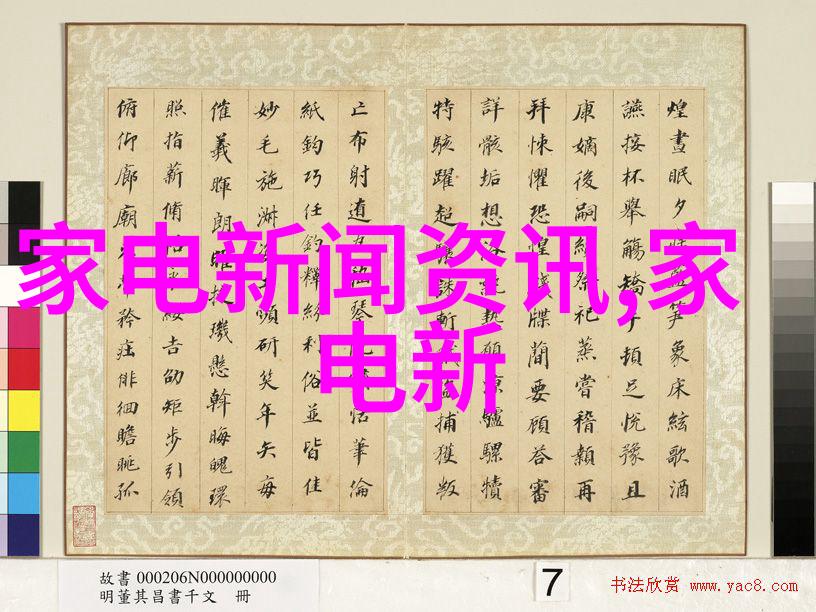 家电新闻资讯,家
电新
煌晝眠夕笋象床絃歌酒
讌接杯舉觴矯手頓足悅豫且
康嫡後嗣續祭祀蒸嘗稽顙再
拜悚懼恐惶牋牒簡要顧答審
詳骸垢想浴執熱願涼驢騾犢
特駭躍超驤誅斬盜捕獲叛
亡布射遼丸嵇琴恬筆倫
紙鈞巧任釣釋紛利俗並皆佳
妙毛施淑姿工妍笑年矢每
催羲暉朗曜璣懸斡晦魄環
照指薪脩祜永綏吉劭矩步引領
俯仰廊廟束帶矜莊徘徊瞻眺孤
故書 000206N000000000
明董其昌書千文 冊
7
书法欣赏 www.yac8.com